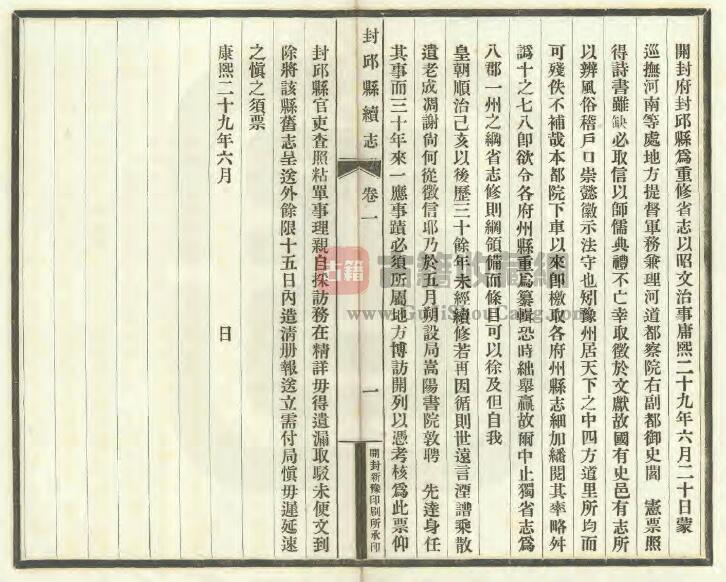 開封府封邱縣爲重修省志以昭文治事康熙二十九年六月二十日蒙
巡撫河南等處地方提督軍務兼理河道都察院右副都御史閻　憲票照
得詩書雖缺必取信以師儒典禮不亡幸取徵於文獻故國有史邑有志所
以辨風俗稽戶口崇懿徽示法守也矧豫州居天下之中四方道里所均而
可殘佚不補哉本都院下車以來卽檄取各府州縣志細加繙閱其率略舛
譌十之七八卽欲令各府州縣重爲纂輯恐時絀舉贏故爾中止獨省志爲
八郡一州之綱省志修則綱領備而條目可以徐及但自我
皇朝順治己亥以後歷三十餘年未經續修若再因循則世遠言湮譜乘散
遺老成凋謝尙何從徵信耶乃於五月朔設局嵩陽書院敦聘　先達身任
其事而三十年來一應事蹟必須所屬地方博訪開列以憑考核爲此票仰
封邱縣續志
卷一
一
開封新豫印刷所承印
封邱縣官吏查照粘單事理親自採訪務在精詳毋得遺漏取駁未便文到
除將該縣舊志呈送外餘限十五日內造清册報送立需付局愼毋遲延速
之愼之須票
康熙二十九年六月　日
古籍
古籍收藏網
www.GujiShouCang.com